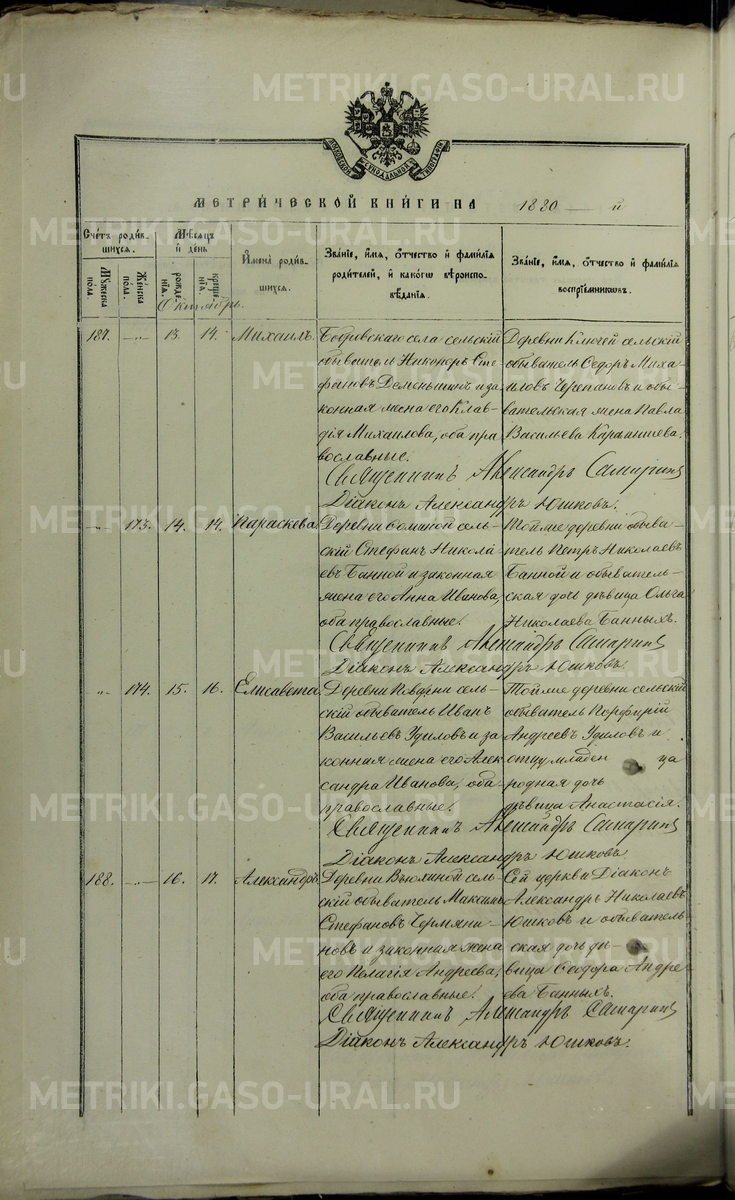 METRIKI.GASO-URAL.RU
МОСКОВСКОЙ СѴНОДАЛЬНОЙ ТИПОГРАФІИ
МЕТРИ́ЧЕСКОЙ КНИ́ГИ НА 1880 й
Сче́тъ роди́в-
шихся.
Му́жеска пола.
Же́нска пола.
Мѣ́сяцъ и́ день
рожде́нїѧ.
креще́нїѧ.
И҆мена̀ роди́в-
шихся.
Зва́нїе, и҆́мя, ѻ҆́тчество и҆ фами́лїя
роди́телей, и҆ како́гѡ вѣроиспо-
вѣ́данїѧ.
Зва́нїе, и҆́мя, ѻ҆́тчество и҆ фами́лїя
воспрїе́мникѡвъ.
Октябрь.
187. -„- 13. 14. Михаилъ.
Бобровскаго села сельскій
обыватель Никоноръ Сте-
фановъ Деменьшинъ и за
конная жена его Клав-
дія Михаилова, оба пра
вославные.
Деревни Ключей сельскій
обыватель Ѳедоръ Миха-
иловъ Черепановъ и обы-
вательская жена Павла
Васильева
Священникъ Александръ
Діаконъ Александръ Юшковъ.
-„- 173. 14. 14. Параскева.
Деревни сель-
скій Стефанъ Никола
евъ Банной и законная
жена его Анна Иванова,
оба православные.
Тойже деревни обыва-
тель Петръ Николаевъ
Банной и обыватель-
ская дочь дѣвица Ольга
Николаева Банныхъ.
Священникъ Александръ
Діаконъ Александръ Юшковъ.
-„- 174. 15. 16. Елисавета
Деревни сель-
скій обыватель Иванъ
Васильевъ Удиловъ и за
конная жена его Алек
сандра Иванова, оба
православные.
Тойже деревни сельскій
обыватель Порфирій
Андреевъ Удиловъ и
отцу младен ца
родная дочь
дѣвица Анастасія.
Священникъ Александръ
Діаконъ Александръ Юшковъ
188. -„- 16. 17. Александръ.
Деревни сель-
скій обыватель Максимъ
Стефановъ Чермяни-
новъ и законная жена
его Пелагія Андреева,
оба православные.
Сей церкви Діаконъ
Александръ Николаевъ
Юшковъ и обыватель-
ская дочь дѣ-
вица Ѳеодора Андре
ева Банныхъ.
Священникъ Александръ
Діаконъ Александръ Юшковъ.